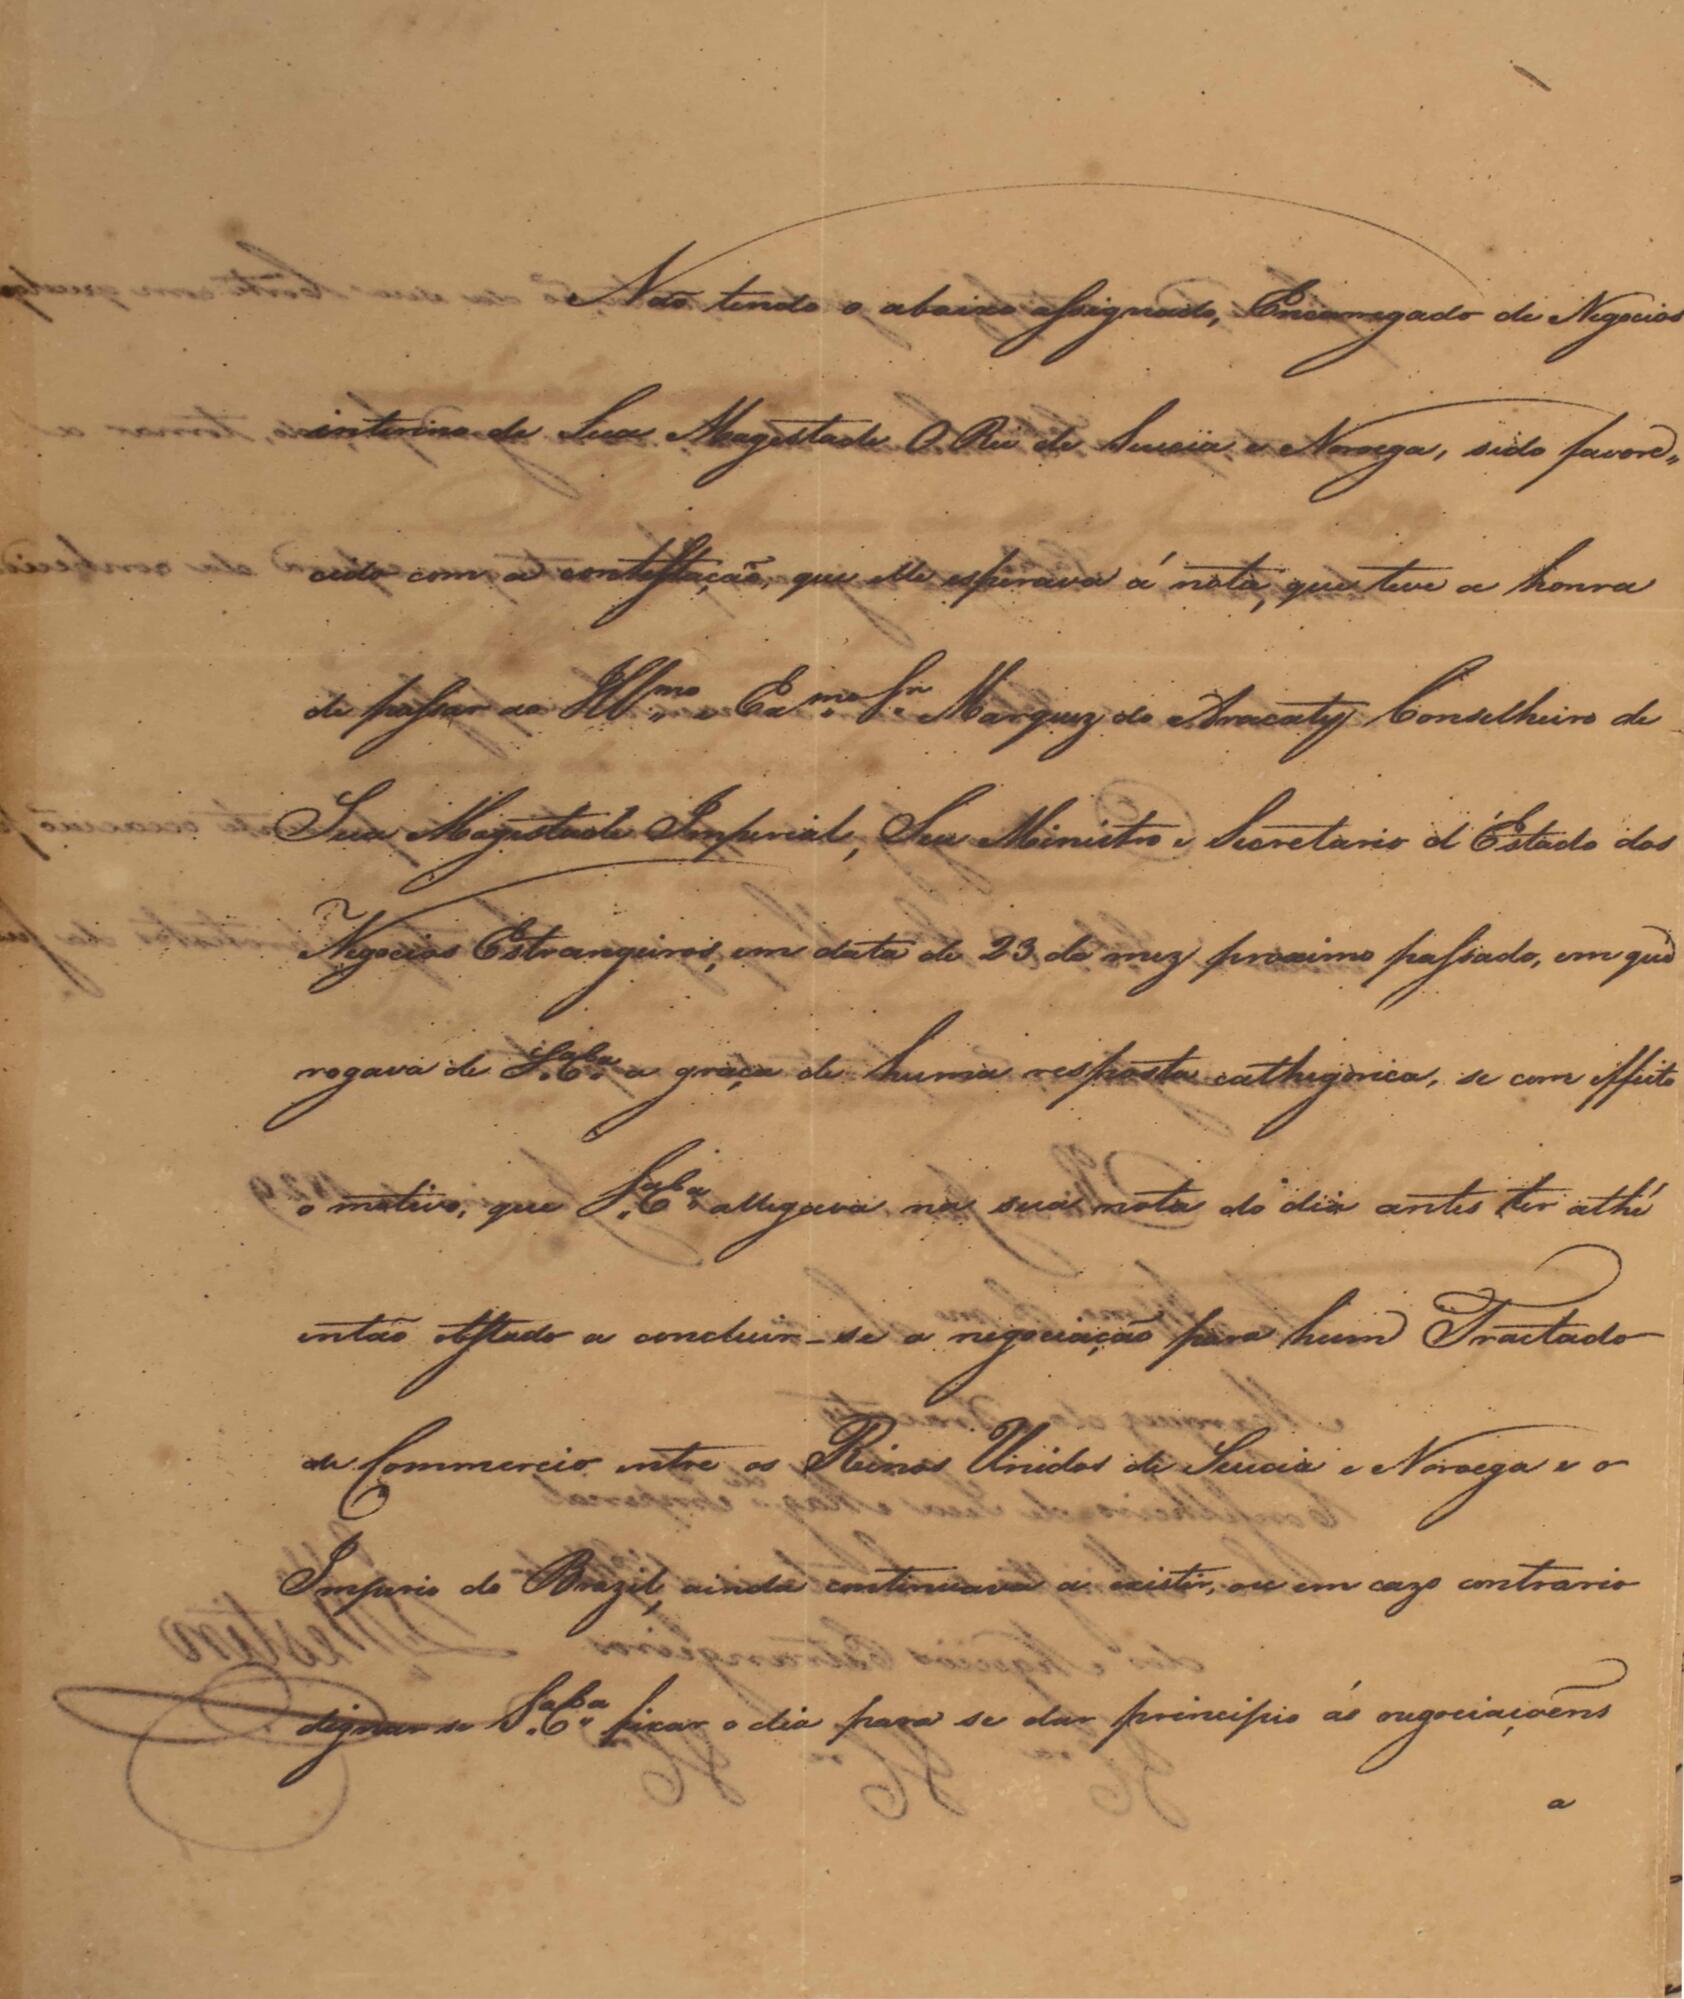 Não tendo o abaixo assignado, Encarregado de Negocios
interino de Sua Magestade O Rei de Suecia e Noroega, sido favore„
cido com a contestação, que elle esperava á nota, que teve a honra
de passar ao Illmo. e Exmo. Snr. Marquez do Aracaty Conselheiro de
Sua Magestade Imperial, Seu Ministro e Secretario d'Estado dos
Negocios Estrangeiros, em data de 23 do mez proximo passado, em que
rogava de S.a Ex.a a graça de huma resposta cathegorica, se com effeito
o motivo, que S.a Ex.a allegava na sua nota do dia antes ter athé
então obstado a concluir-se a negociação para hum Tractado
de Commercio entre os Reinos Unidos de Suecia e Noroega e o
Imperio do Brazil, ainda continuava a existir, ou em cazo contrario
dignar se S.a Ex.a fixar o dia para se dar principio ás negociaçoens
a